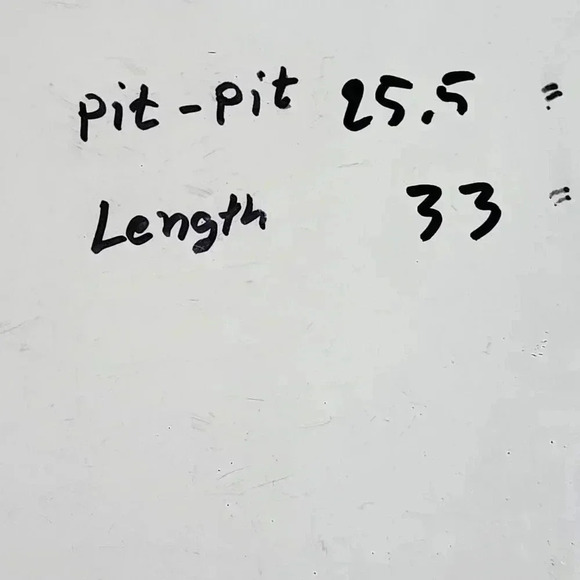 Pit-Pit 25.5 "
Length 33 "